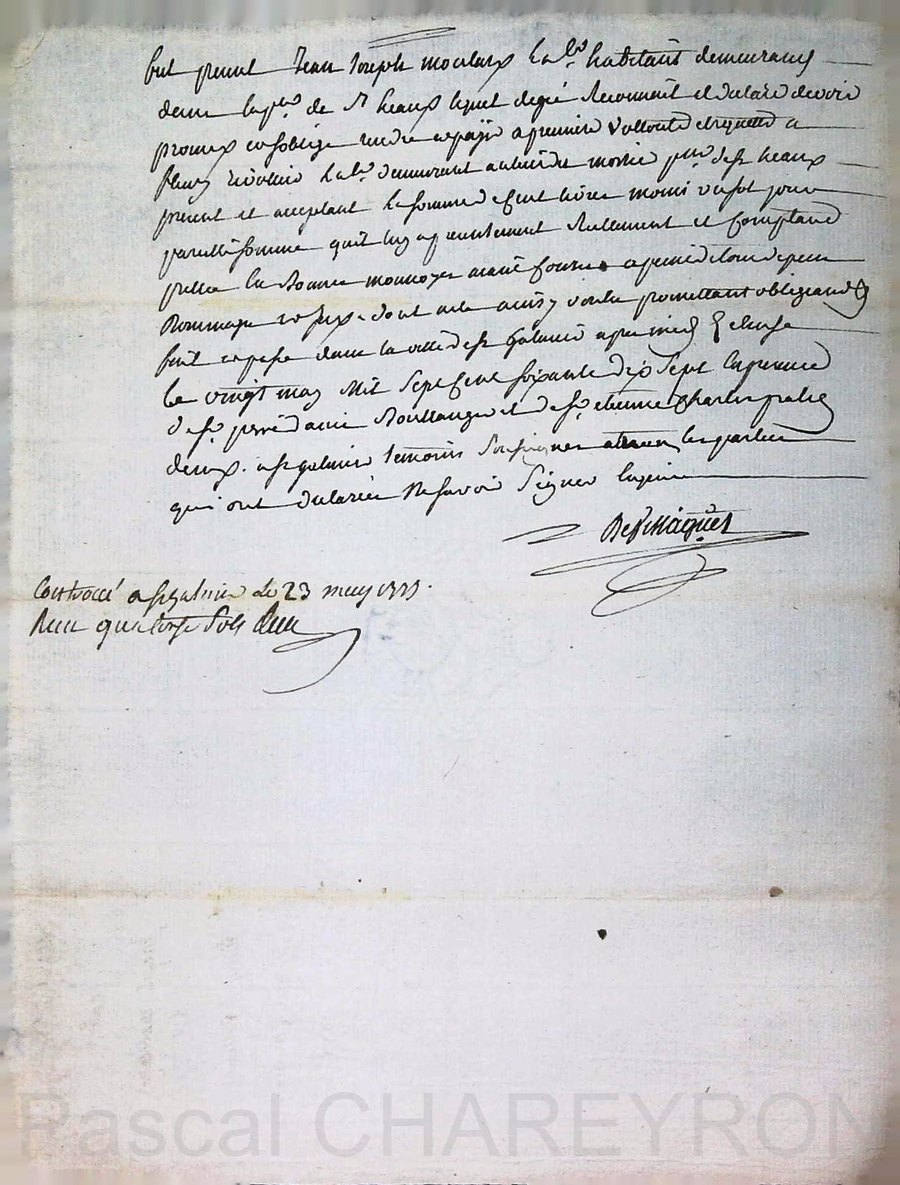 fut present Jean Joseph moulaux Lab.r habitant demeurant
dans la p.sse de St heaux lequel de gré Reconnoit et declare devoir
promet et s'oblige rendre et payer a premiere Vollonté et requette a
fleury Lab.r demeurant au lieu du p.sse de St heaux
present et acceptant la somme de Cent livres moins un sol pour
pareille somme qu'il luy a presentement Reellement et Comptant
presté en Bonne monnoyes aiant Cours a peine de tous depens
Dommages dont acte ainsy voulu promettant obligeant &
fait et passé dans la ville de St galmier apres midy
Le vingt may Mil Sept Cent soixante dix Sept En presence
de S.r pierre Boullanger et de S.r etienne Charles
deux a St galmier temoins Soussignes les parties
qui ont declarées Ne Savoir Signer
Contrôlé a St galmier le 23 may 1777.
Reçu quatorze Sols
Pascal CHAREYRON